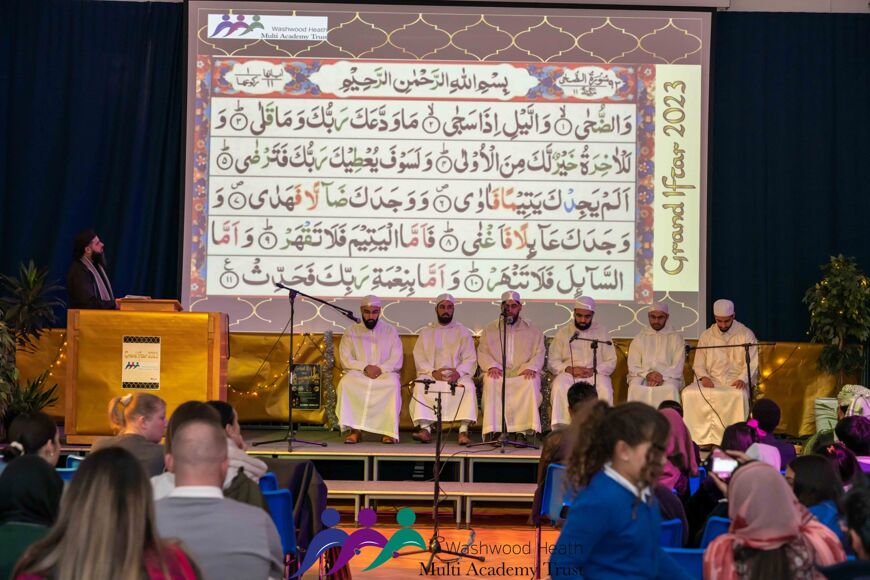 Washwood Heath
Multi Academy Trust
بِسْمِ اللهِ الرَّحْمٰنِ الرَّحِيْمِ
وَالضُّحٰى ۝١ وَالَّيْلِ اِذَا سَجٰى ۝٢ مَا وَدَّعَكَ رَبُّكَ وَمَا قَلٰى ۝٣ وَ
لَلْاٰخِرَةُ خَيْرٌ لَّكَ مِنَ الْاُوْلٰى ۝٤ وَلَسَوْفَ يُعْطِيْكَ رَبُّكَ فَتَرْضٰى ۝٥
اَلَمْ يَجِدْكَ يَتِيْمًا فَاٰوٰى ۝٦ وَوَجَدَكَ ضَآلًّا فَهَدٰى ۝٧ وَ
وَجَدَكَ عَآىِٕلًا فَاَغْنٰى ۝٨ فَاَمَّا الْيَتِيْمَ فَلَا تَقْهَرْ ۝٩ وَاَمَّا
السَّآىِٕلَ فَلَا تَنْهَرْ ۝١٠ وَاَمَّا بِنِعْمَةِ رَبِّكَ فَحَدِّثْ ۝١١
Grand Iftar 2023
Washwood Heath
Multi Academy Trust